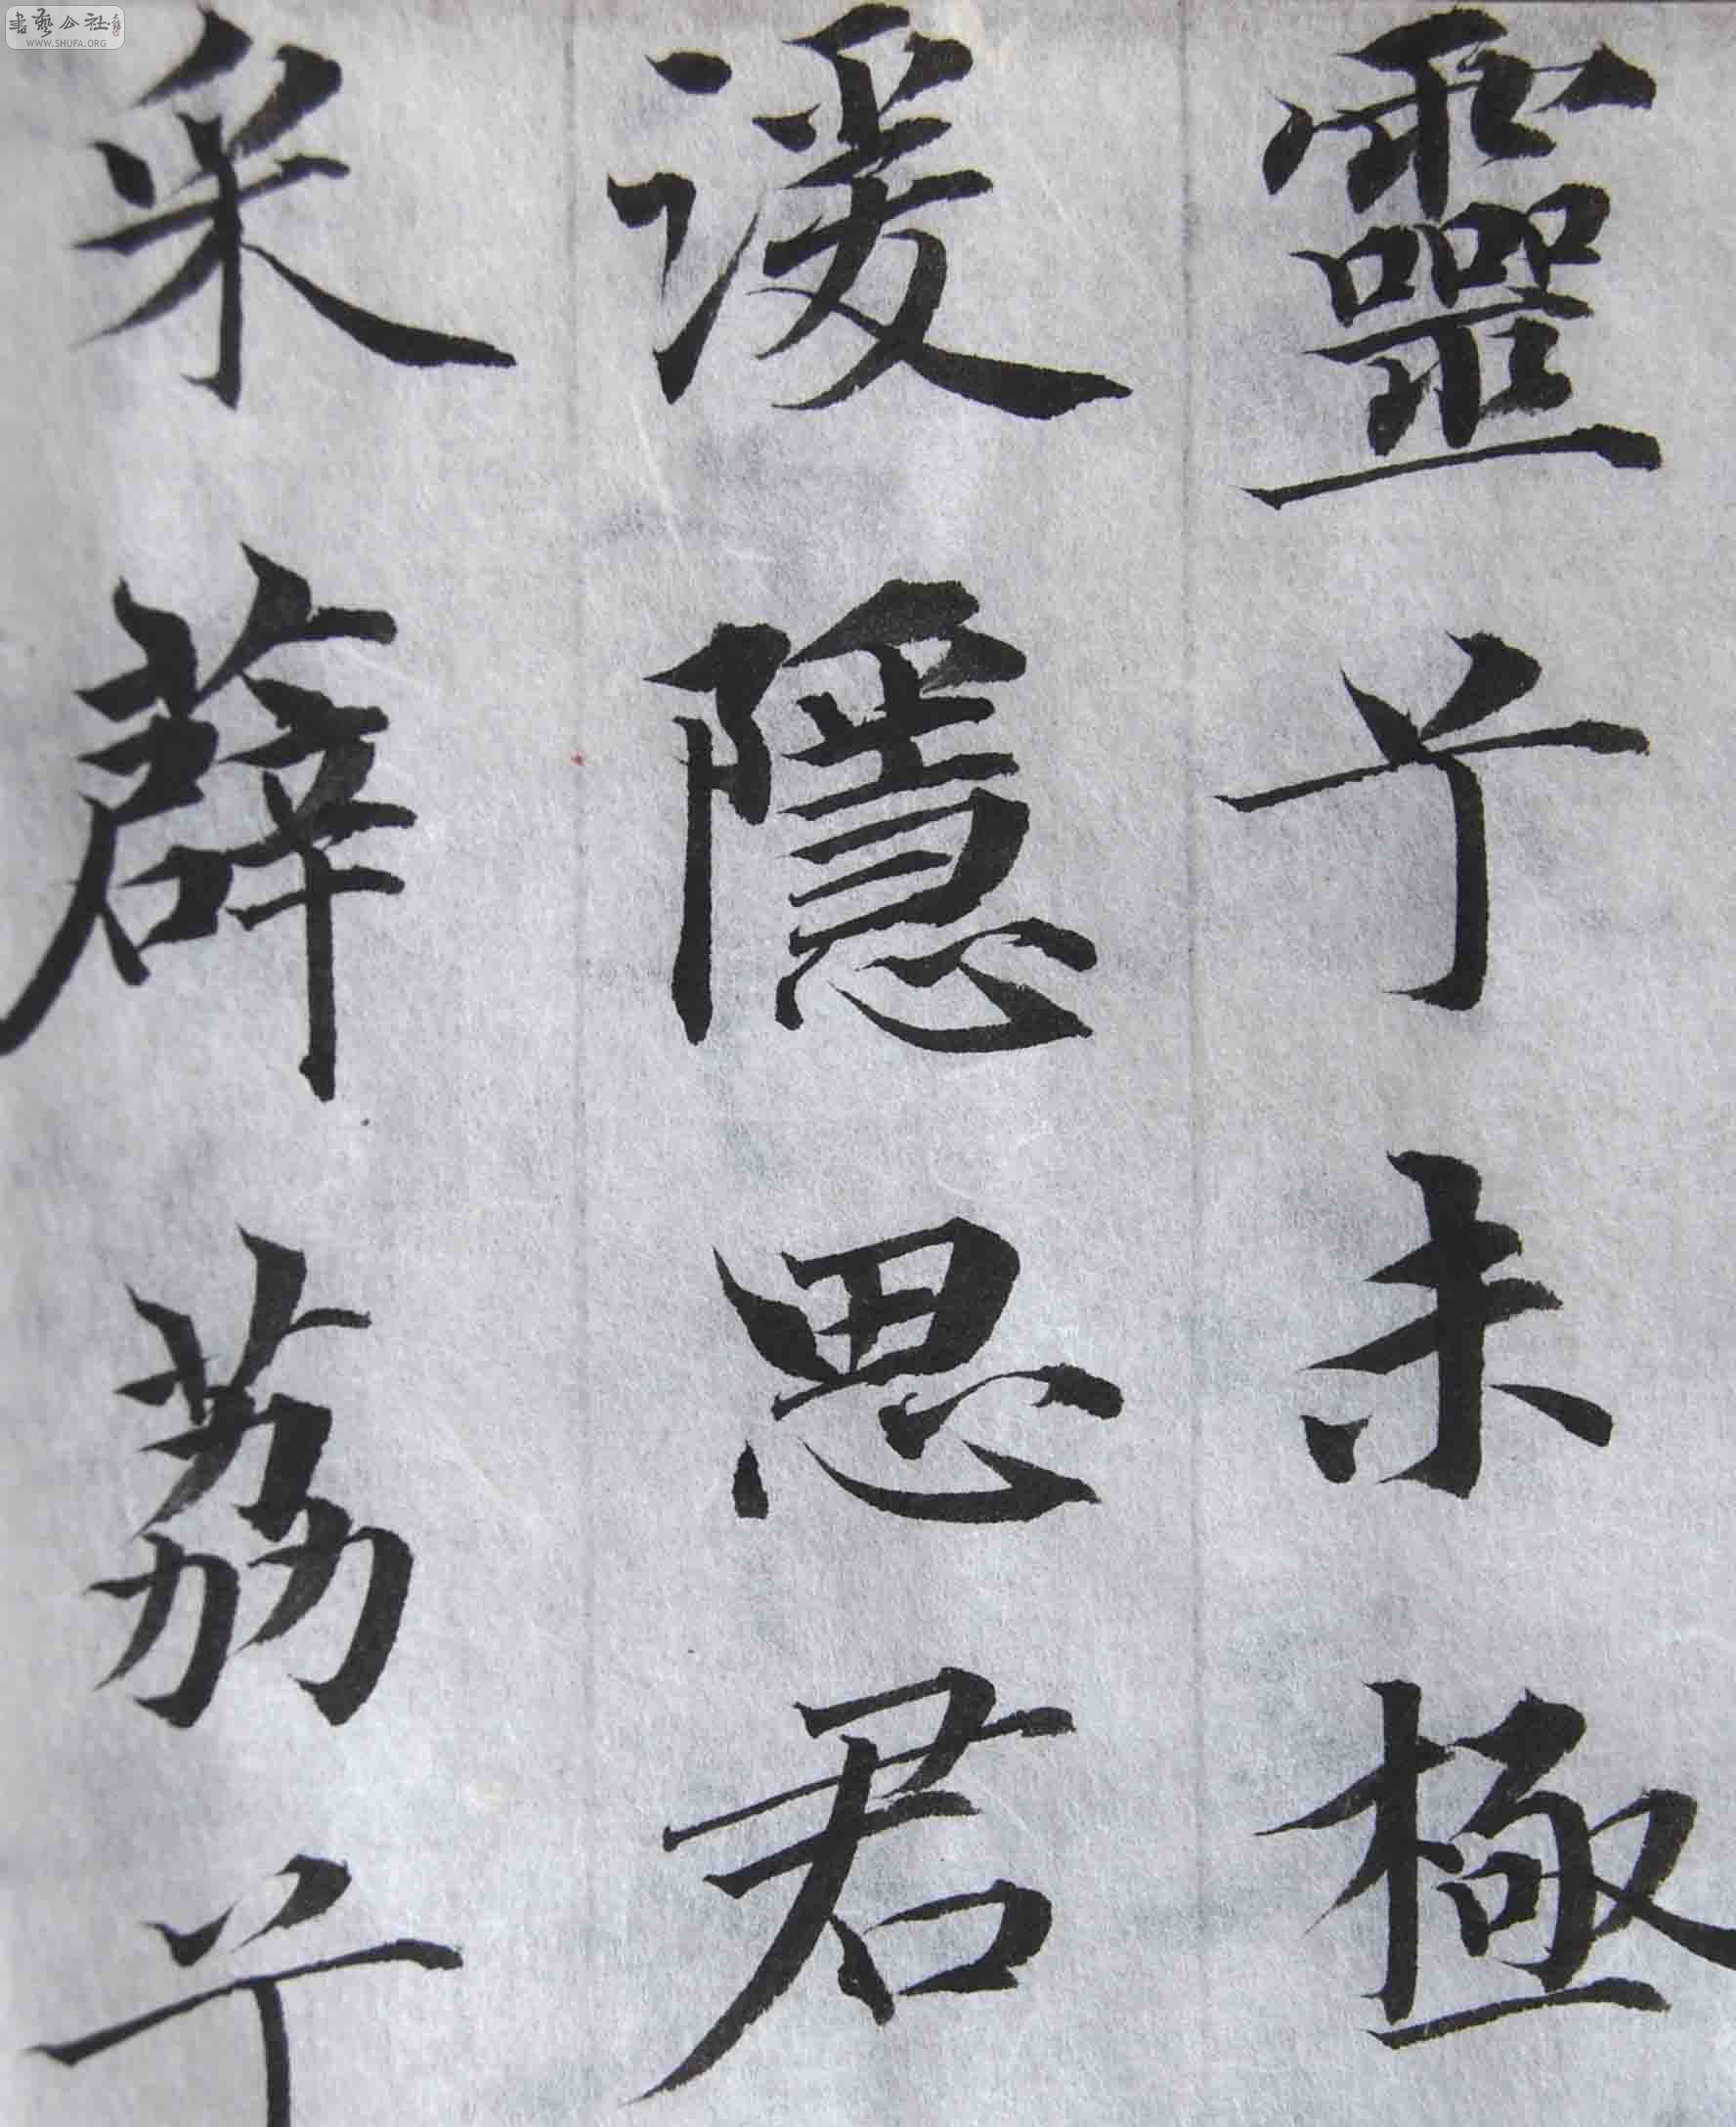 靈兮未極
湲隱思君
采薜荔兮
書藝公社
WWW.SHUFA.ORG